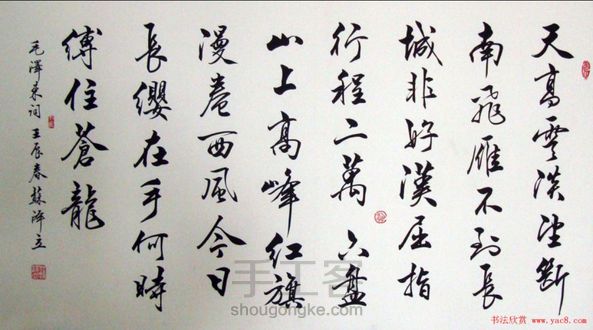 天高雲淡望斷
南飛雁不到長
城非好漢屈指
行程二萬六盤
山上高峰紅旗
漫卷西風今日
長纓在手何時
縛住蒼龍
毛澤東詞 壬辰春 蘇澤立
手工客
shougongke.com
书法欣赏 www.yac8.com